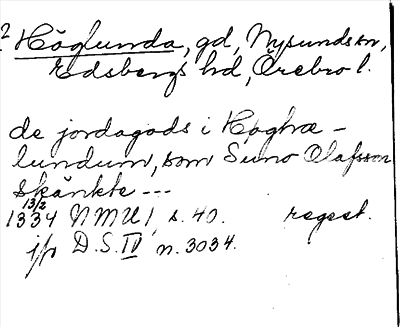 2 Höglunda, gd, Nysunds sn,
Edsbergs hd, Örebro l.
de jordagods i Høghæ-
lundum, som Suno Olafsson
skänkte ---
13/2
1334 NMU I, s. 40. regest.
jfr D.S. IV, n. 3034.